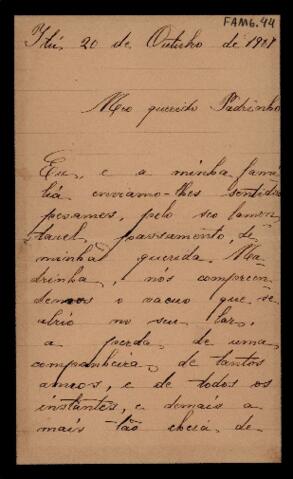 FAM6.44
Itú, 20 de Outubro de 1907
Meo querido Padrinho
Eu, e a minha fami
lia enviamo-lhes sentidos
pesames, pelo seo lamen
tavel, passamento, de
minha querida Ma
drinha, nós compreen
demos o vacuo que se
abrio no seu lar,
a perda de uma
companheira, de tantos
annos, e de todos os
instantes, e demais a
mais tão cheia de